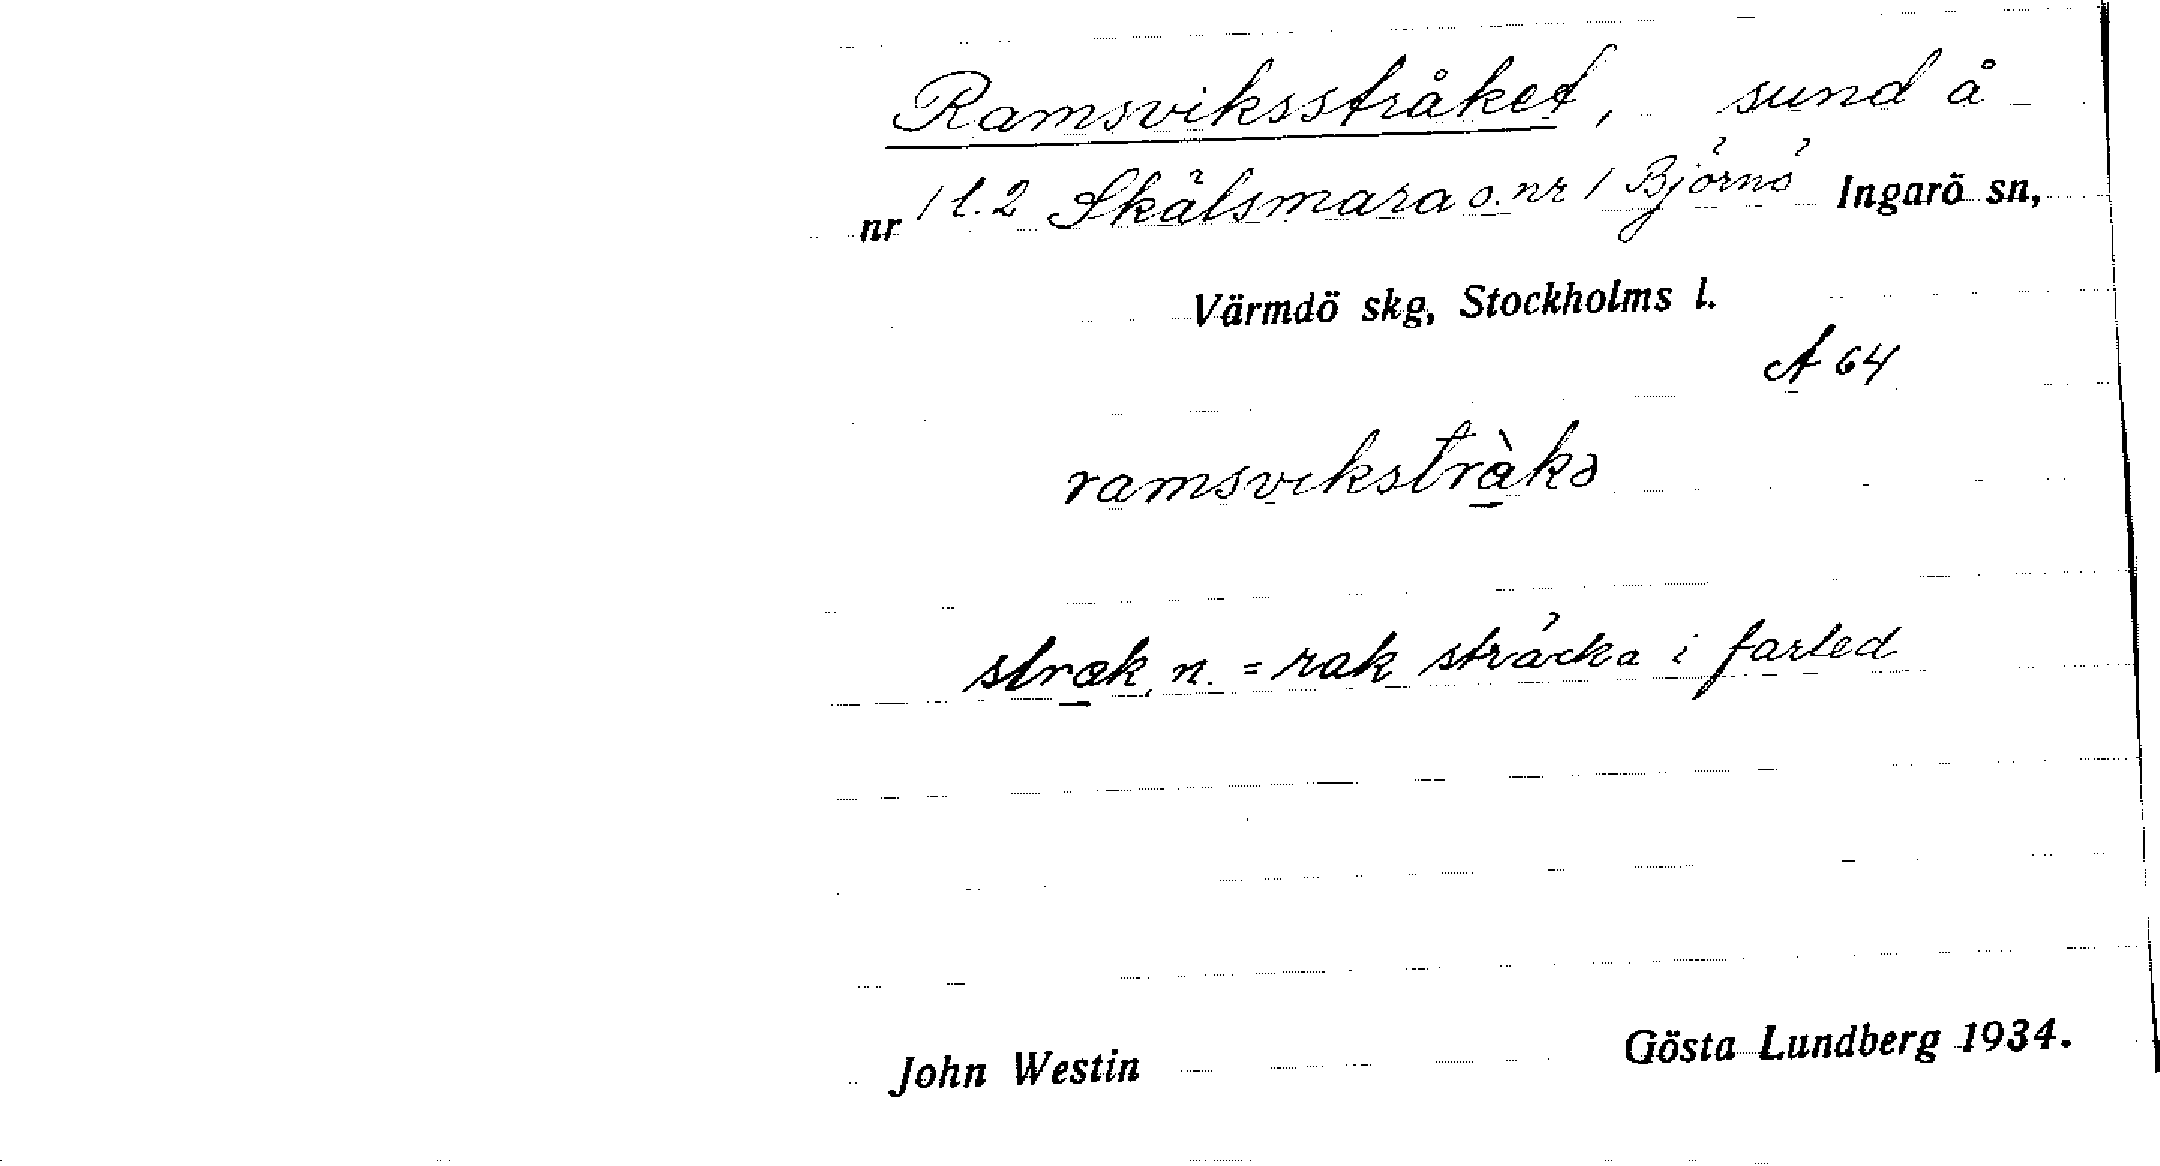 Ramsviksstråket, sund å
nr 1 l. 2 Skälsmara o. nr 1 Björnö Ingarö sn,
Värmdö skg, Stockholms l.
A 64
ramsvikstràkə
strak, n. = rak sträcka i farled
John Westin Gösta Lundberg 1934.